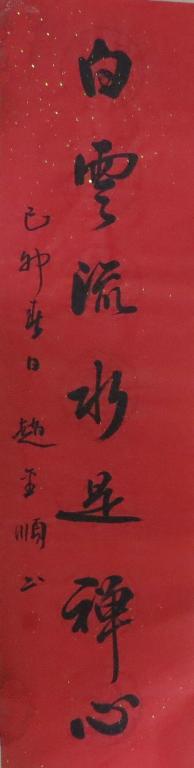 白雲流水是禪心
己卯春日 趙玉順